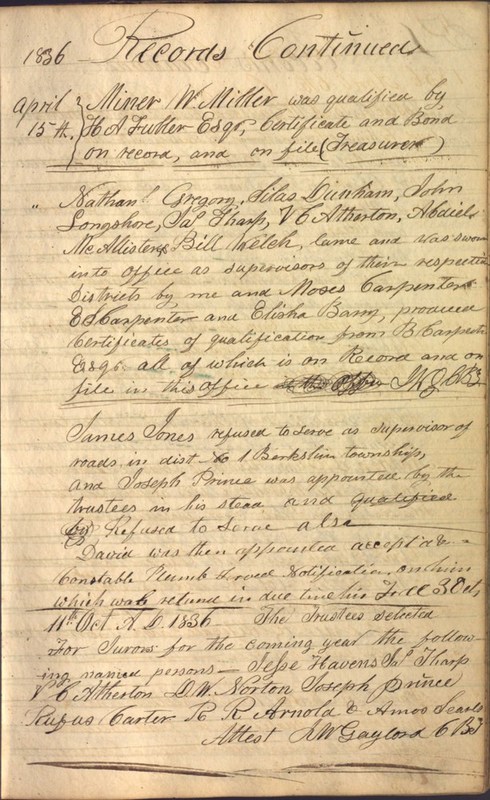 1836 Records Continued
April 15th. Miner W. Miller was qualified by
H A Fuller Esqr, Certificate and Bond
on record, and on file (Treasurer)
" Nathanl Gregory, Silas Dunham, John
Longshore, Jas Tharp, V C Atherton, Abdiel
McAllister & Bill Welch, Came and was sworn
into office as supervisors of their respective
Districts by me and Moses Carpenter
E S Carpenter and Elisha Barry, produced
Certificates of qualification from B Carpenter
Esqr. all of which is on Record and on
file in this office
James Jones refused to serve as supervisor of
roads in dist No 1 Berkshire township,
and Joseph Prince was appointed by the
trustees in his stead and qualified
Refused to serve also
David was then appointed accepted
Constable Plumb served Notification on him
which was returnd in due time his Fee 30 cts
11th Oct A.D 1836. The Trustees selected
For Jurors for the coming year the follow-
ing named persons — Jesse Havens Jas Tharp
V C Atherton D. W. Norton Joseph Prince
Rufus Carter R R Arnold & Amos Searls
Attest A W Gaylord